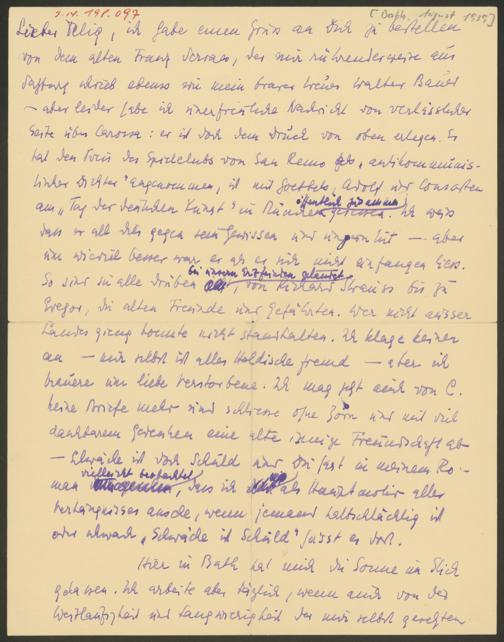 3.N.198.097
[Bath, August 1939]
Lieber Felix, ich habe einen Gruss an Dich zu bestellen
von dem alten Franz Servaes, der mir rührenderweise aus
Salzburg schrieb ebenso wie mein braver treuer Walter Bauer
– aber leider habe ich unerfreuliche Nachricht von verlässlicher
Seite über Carossa: er ist doch dem Druck von oben erlegen. Er
hat den Preis des Spielclubs von San Remo für „antikommunis-
tischer Dichter" angenommen, ist mit Goebbels, Adolf und Consorten
am „Tag der deutschen Kunst" in München öffentlich zusammen
gesessen. Ich weiss
dass er all dies gegen sein Gewissen und ungern tut – aber
um wieviel besser war er als er sich nicht einfangen liess.
So sind sie alle drüben bei unserm Empfinden, von Richard Strauss bis zu
Gregor, die alten Freunde und Gefährten. Wer nicht ausser
Landes gieng konnte nicht standhalten. Ich klage keinen
an – mir selbst ist alles Heldische fremd – aber ich
trauere um liebe Verstorbene. Ich mag jetzt auch von C.
keine Briefe mehr und schliesse ohne Zorn und mit viel
dankbarem Gedenken eine alte innige Freundschaft ab
– Schwäche ist doch Schuld und Du hast in meinem Ro-
man vielleicht beobachtet, dass ich es als Hauptmotiv alles
Verhängnisses ansehe, wenn jemand halbschlächtig ist
oder schwach „Schwäche ist Schuld" heisst es dort.
Hier in Bath hat mich die Sonne im Stich
gelassen. Ich arbeite aber täglich, wenn auch von der
Weitläufigkeit und Langwierigkeit der mir selbst gestellten